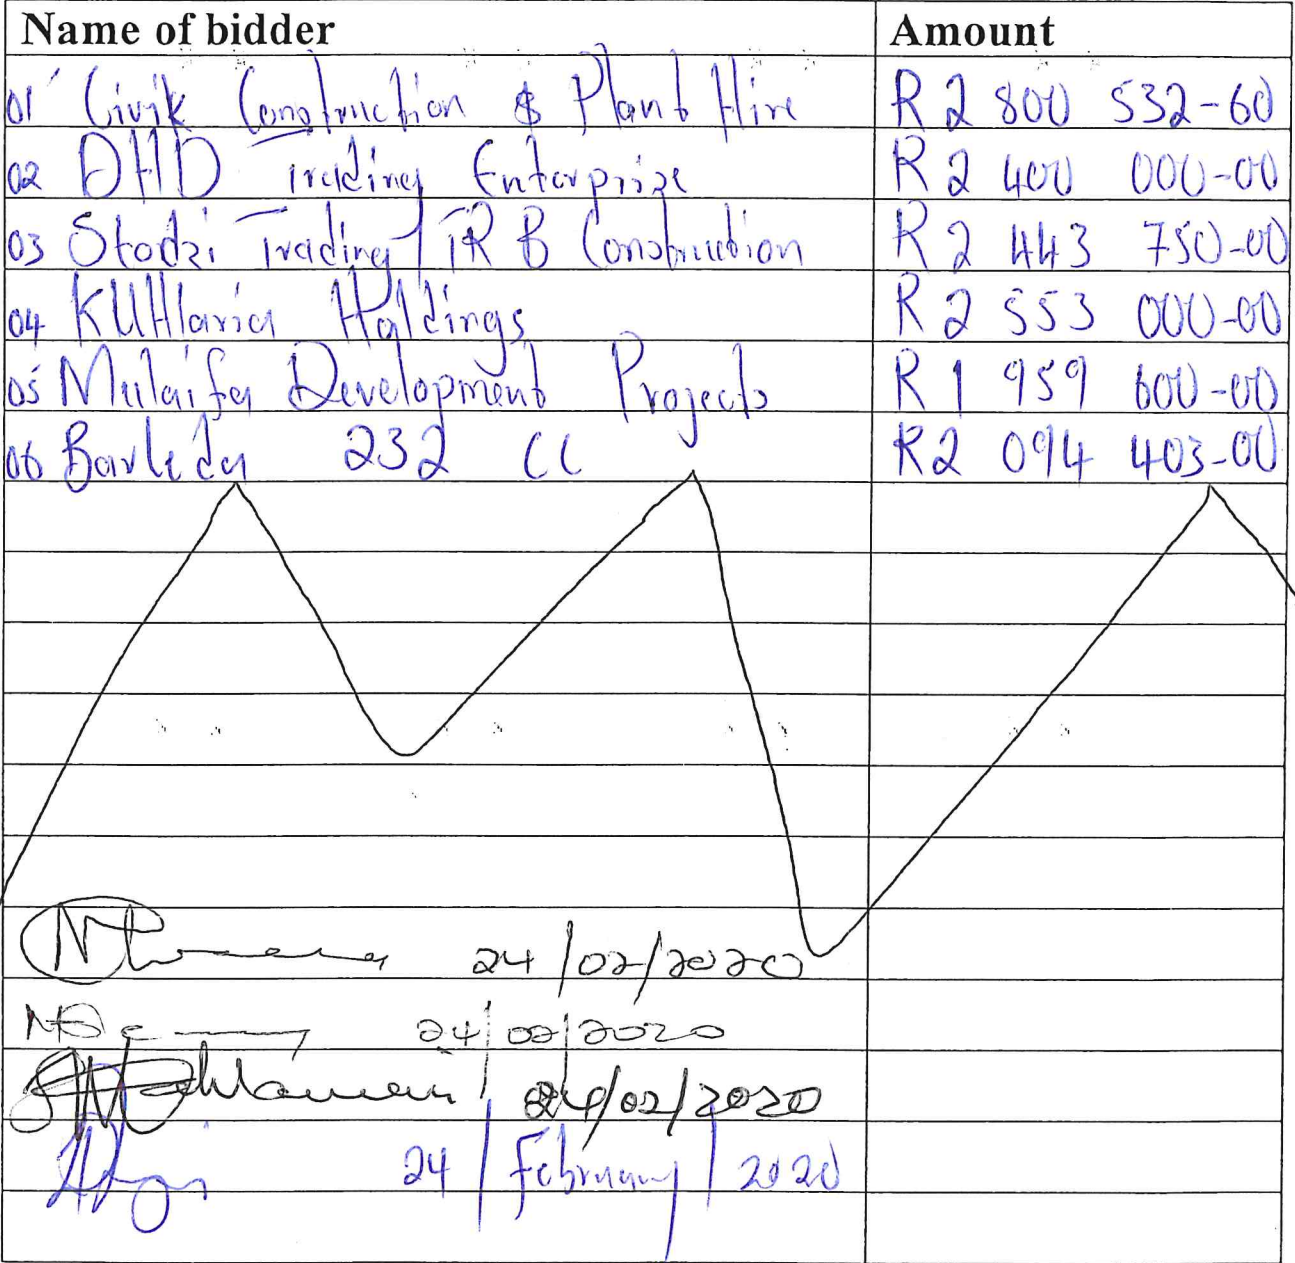 Name of bidder Amount
01 Civik Construction & Plant Hire R 2 800 532-60
02 DHD Trading Enterprise R 2 400 000-00
03 Stodzi Trading / TRB Construction R 2 443 750-00
04 KUHlaria Holdings R 2 553 000-00
05 Mulaifa Development Projects R 1 959 600-00
06 Barleda 232 CC R2 094 403-00
24/02/2020
24/02/2020
24/02/2020
24 / February / 2020